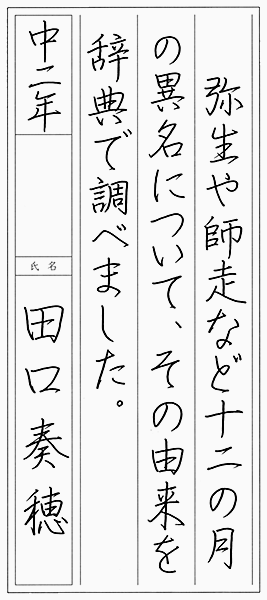 弥生や師走など十二の月
の異名について、その由来を
辞典で調べました。
中二年
氏名
田口奏穂